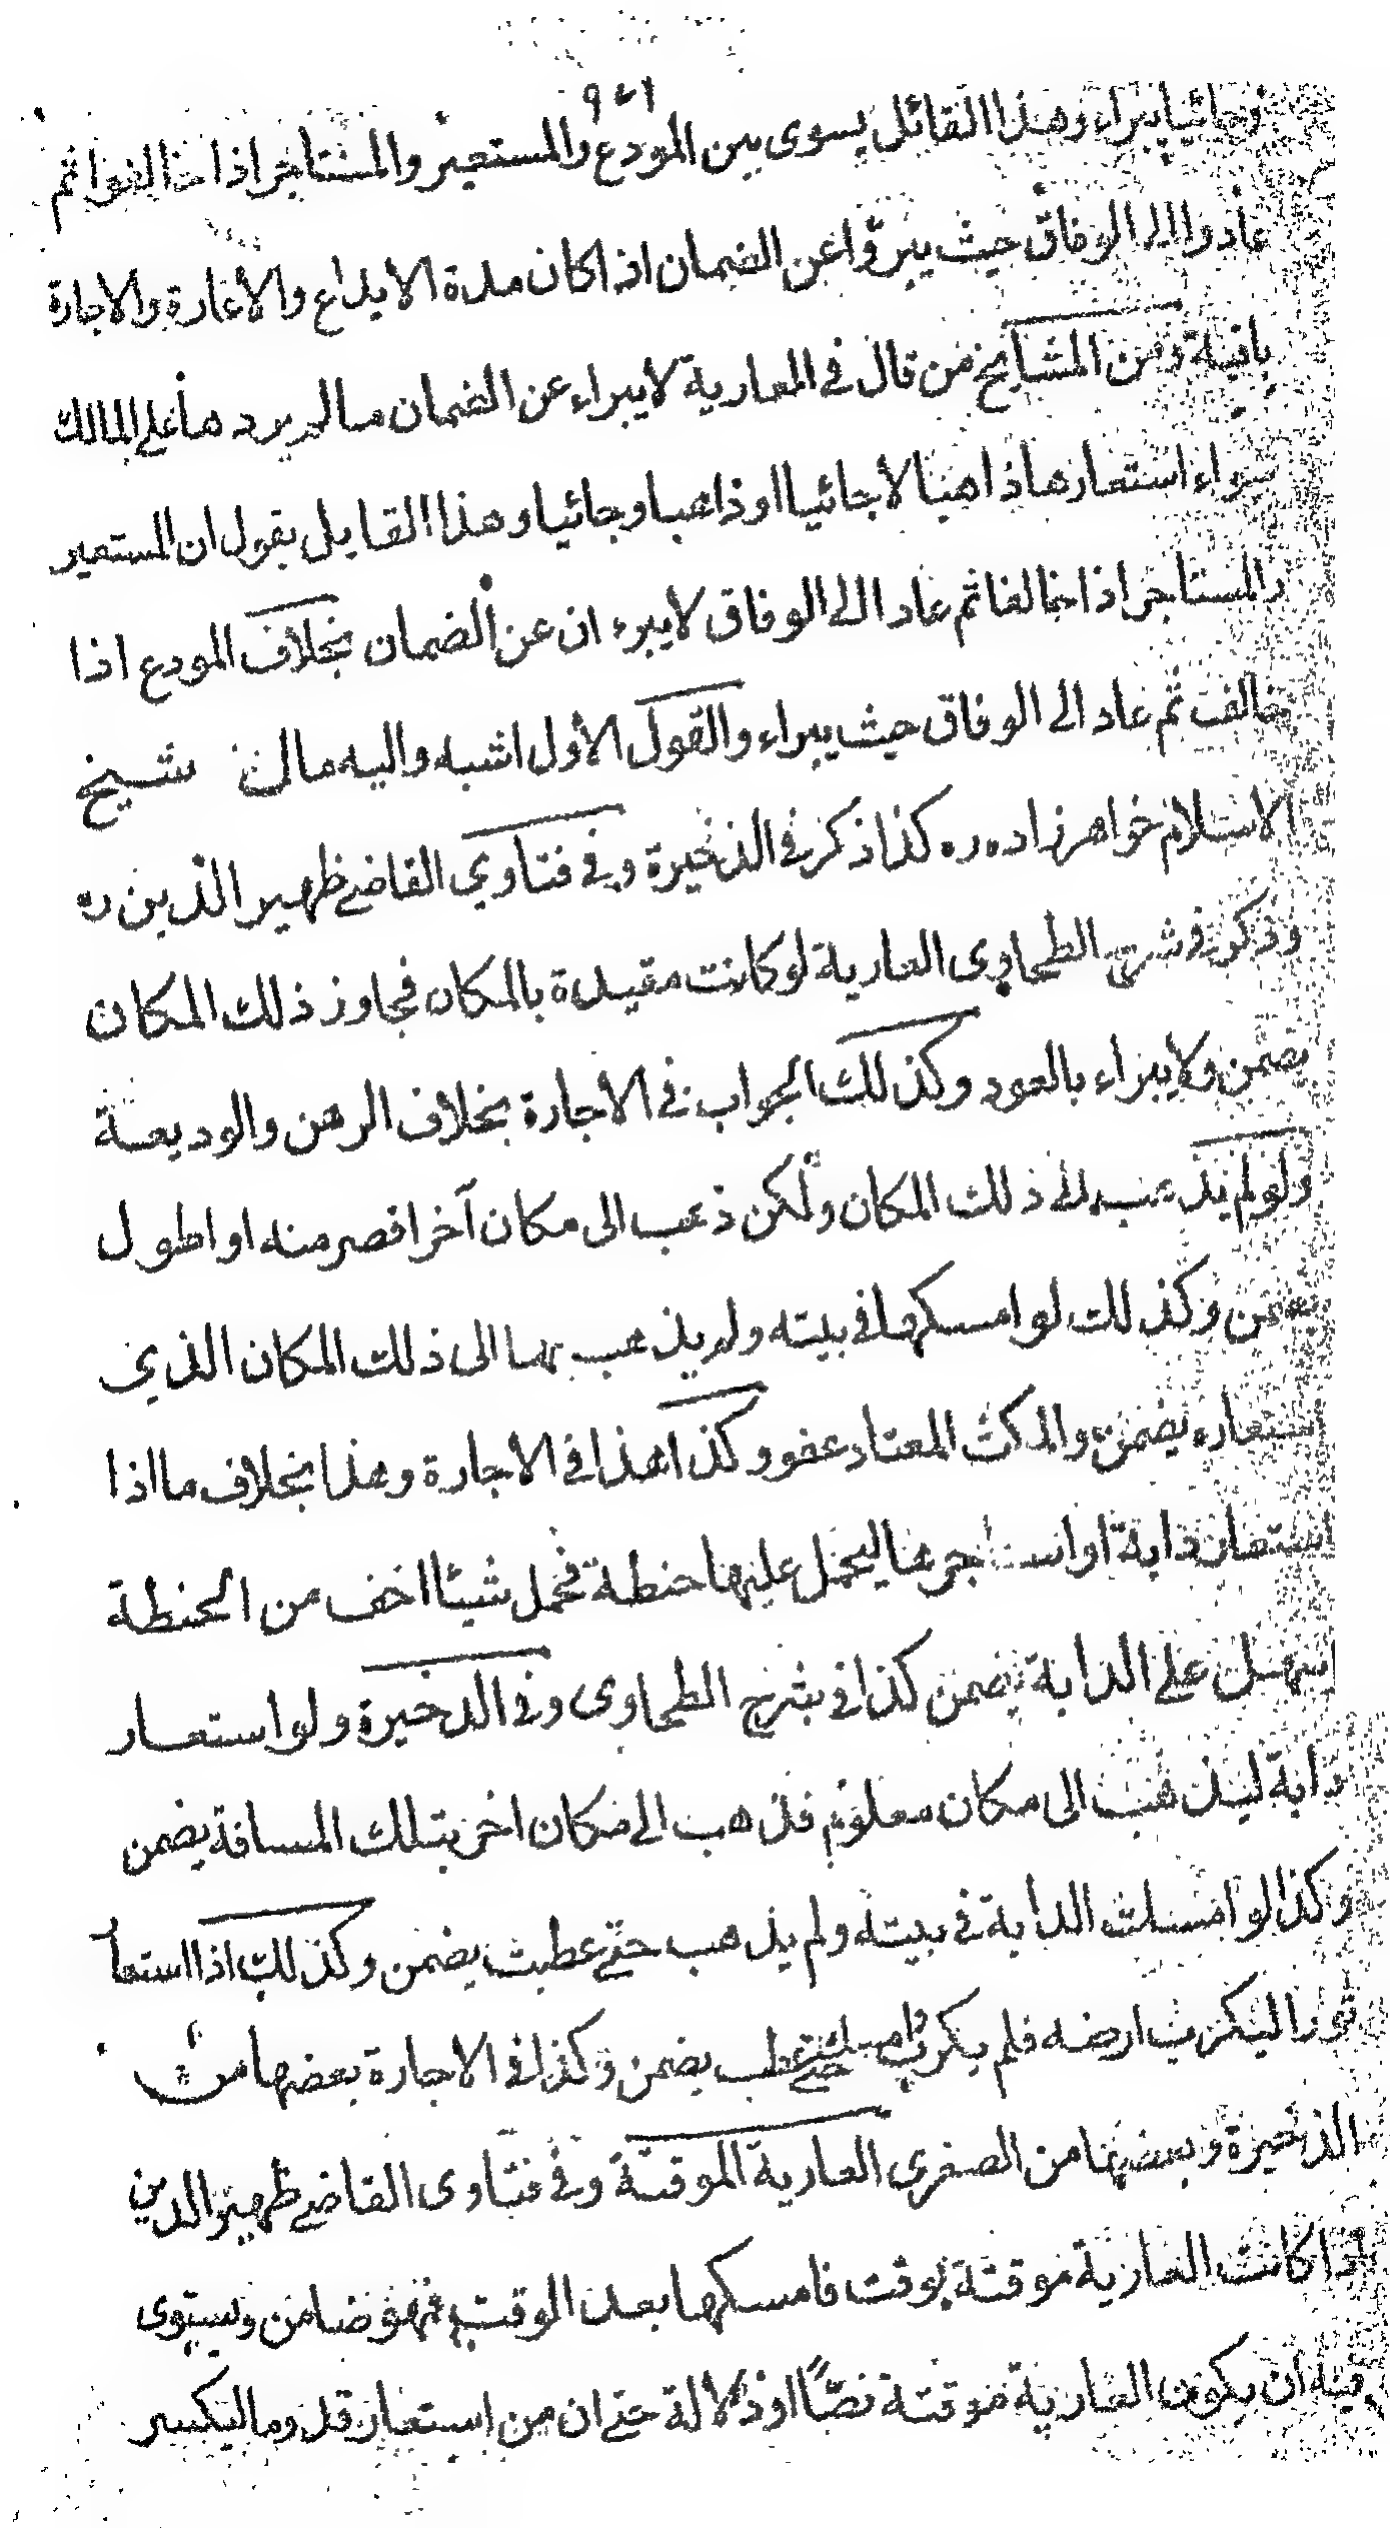 ٩٤١
وجائيا يبراء وهذا القائل يسوى بين المودع والمستعير والمستاجر اذا خالفوا ثم
عادوا الى الوفاق حيث يبرؤا عن الضمان اذا كان مدة الايداع والاعارة والاجارة
باقية ومن المشايخ من قال في العارية لا يبراء عن الضمان مالم يردها على المالك
سواء استعارها ذاهبا لا جائيا او ذاهبا وجائيا وهذا القايل يقول ان المستعير
والمستاجر اذا خالفا ثم عادا الى الوفاق لا يبرءان عن الضمان بخلاف المودع اذا
خالف ثم عاد الى الوفاق حيث يبراء والقول الاول اشبه واليه مال شيخ
الاسلام خواهر زاده ره كذا ذكر في الذخيرة وفي فتاوي القاضي ظهير الدين ره
وذكر في شرح الطحاوى العارية لو كانت مقيدة بالمكان فجاوز ذلك المكان
يضمن ولا يبراء بالعود وكذلك الجواب في الاجارة بخلاف الرهن والوديعة
ولو لم يذهب الى ذلك المكان ولكن ذهب الى مكان آخر اقصر منه او اطول
يضمن وكذلك لو امسكها في بيته ولم يذهب بها الى ذلك المكان الذي
استعاره يضمن والمكث المعتاد عفو وكذا هذا في الاجارة وهذا بخلاف ما اذا
استعار دابة او استاجرها ليحمل عليها حنطة فحمل شيئا اخف من الحنطة
اسهل على الدابة يضمن كذا في شرح الطحاوى وفي الذخيرة ولو استعار
دابة ليذهب الى مكان معلوم فذهب الى مكان اخر بتلك المسافة يضمن
وكذا لو امسك الدابة في بيته ولم يذهب حتى عطبت يضمن وكذلك اذا استعا
ثورا ليكرب ارضه فلم يكرب وامسك حتى عطب يضمن وكذا في الاجارة بعضها من
الذخيرة وبعضها من الصغرى العارية الموقتة وفي فتاوى القاضي ظهير الدين
اذا كانت العارية موقتة بوقت فامسكها بعد الوقت فهو ضامن ويستوى
فيه ان يكون العارية موقتة نصًا او دلالة حتى ان من استعار قدوما ليكسر